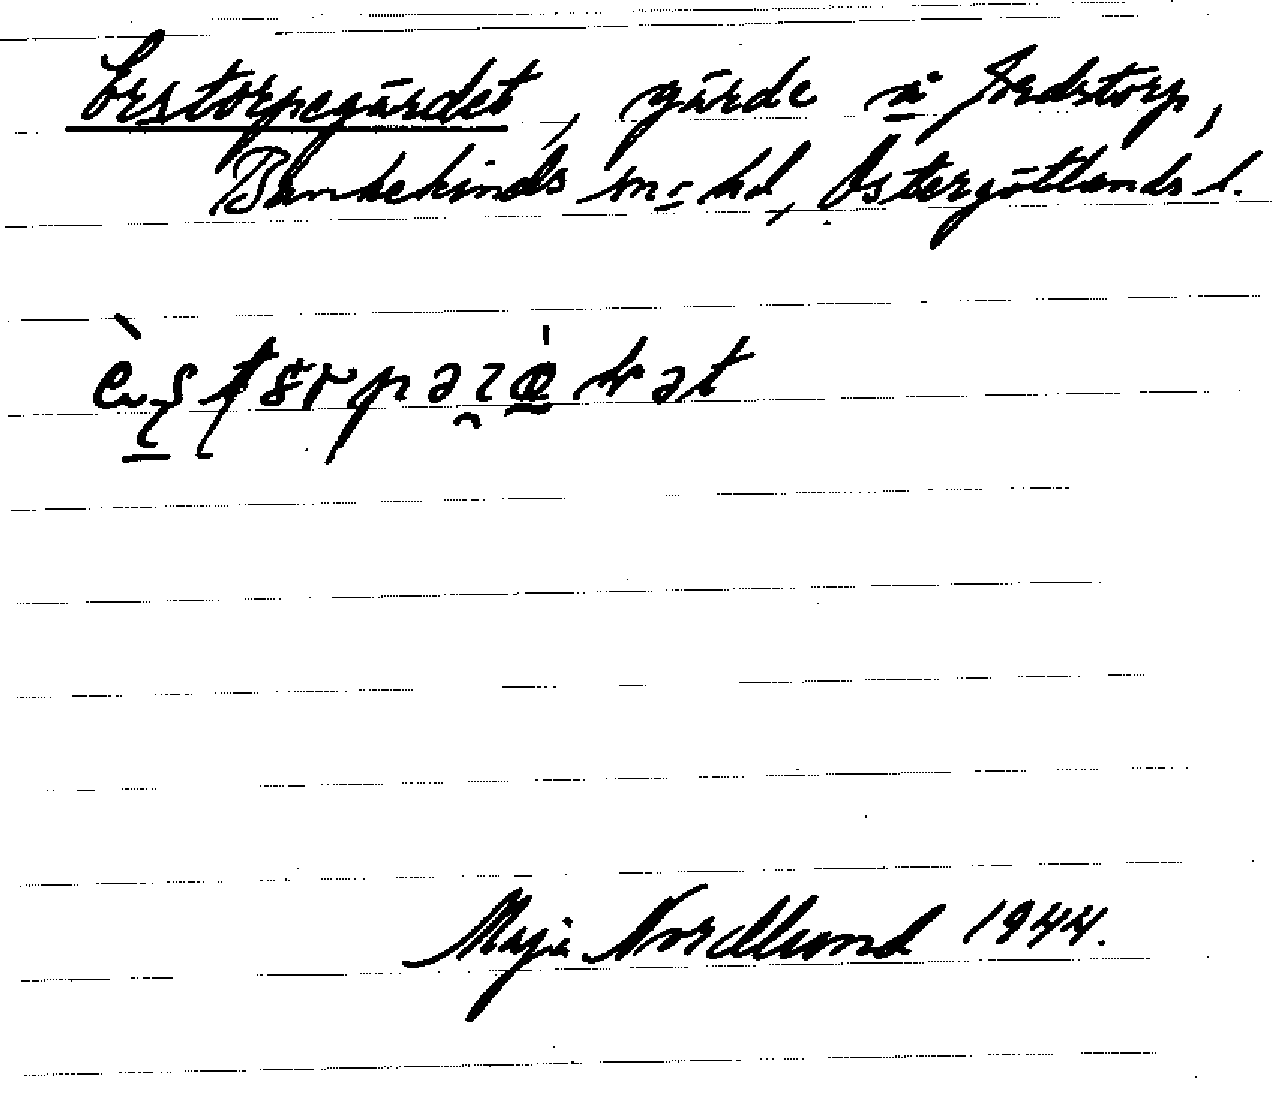 Erstorpegärdet, gärde å Fredstorp,
Bankekinds sn o hd, Östergötlands l.
Maja Nordlund 1944.